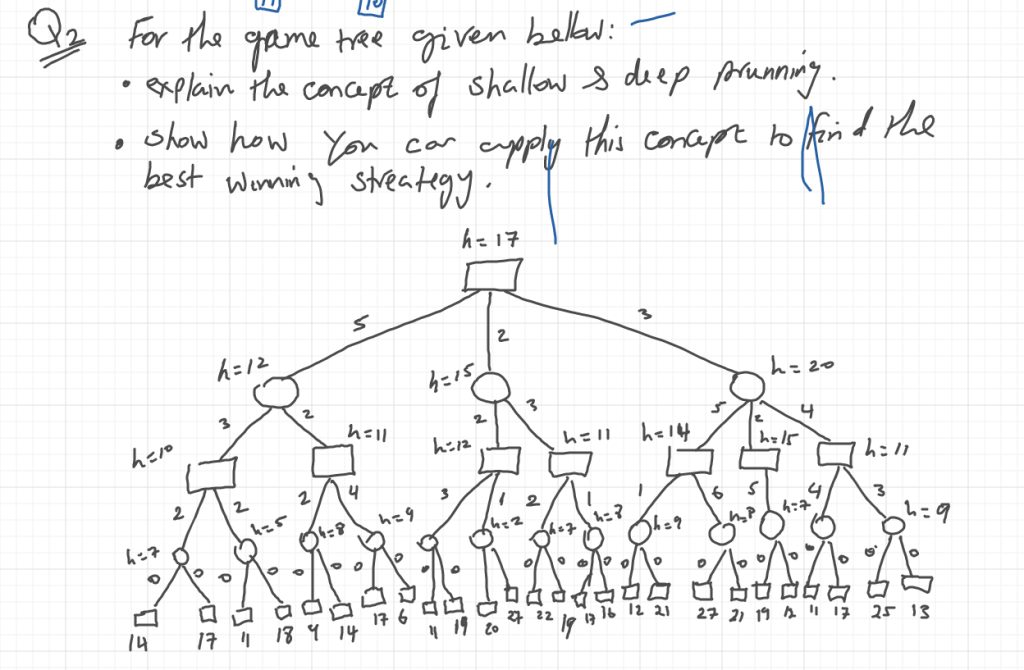 11 10
Q2 For the game tree given bellow:
• explain the concept of shallow & deep prunning.
• show how You can apply this concept to find the
best winning streategy.
h=17
5 2 3
h=12 h=15 h=20
3 2 2 3 5 2 4
h=10 h=11 h=12 h=11 h=14 h=15 h=11
2 2 2 4 3 1 2 1 1 6 5 4 3
h=7 h=5 h=8 h=9 h=2 h=7 h=8 h=9 h=8 h=7 h=9
0 0 0 0 0 0 0 0 0 0 0 0 0 0 0 0 0 0 0 0 0 0
14 17 11 18 9 14 17 6 11 19 20 27 22 19 17 16 12 21 27 21 19 12 11 17 25 13